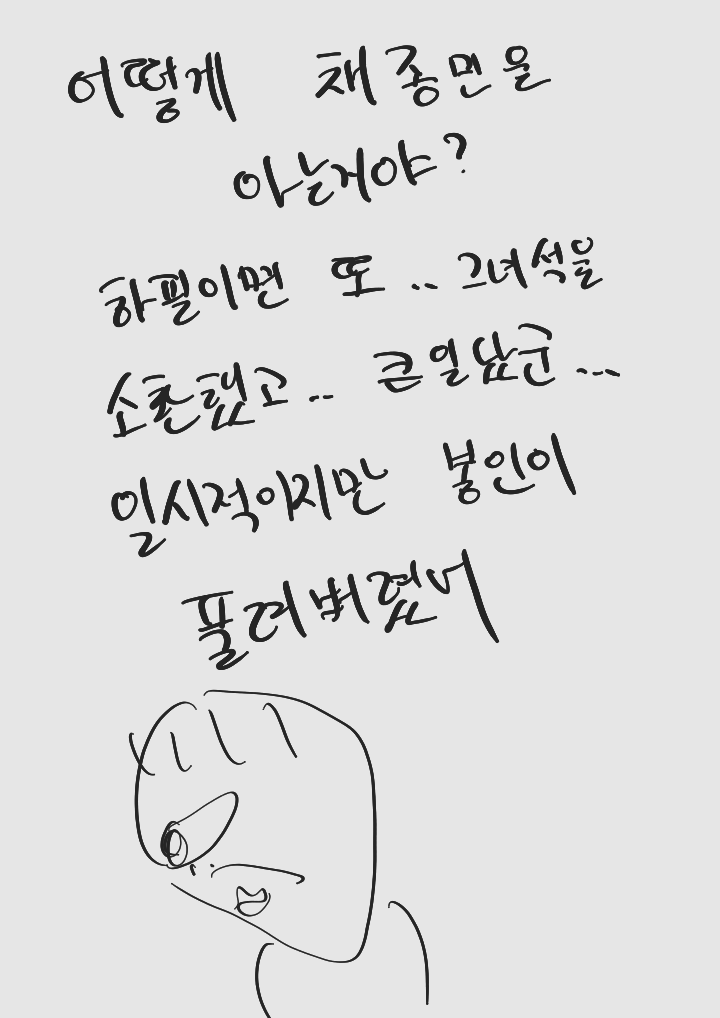 어떻게 채종민을
아는거야?
하필이면 또.. 그녀석을
소환했고.. 큰일났군...
일시적이지만 봉인이
풀려버렸어